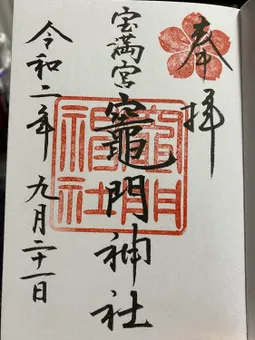 奉拝
宝満宮
竈門神社
令和二年 九月二十一日
竈門神社